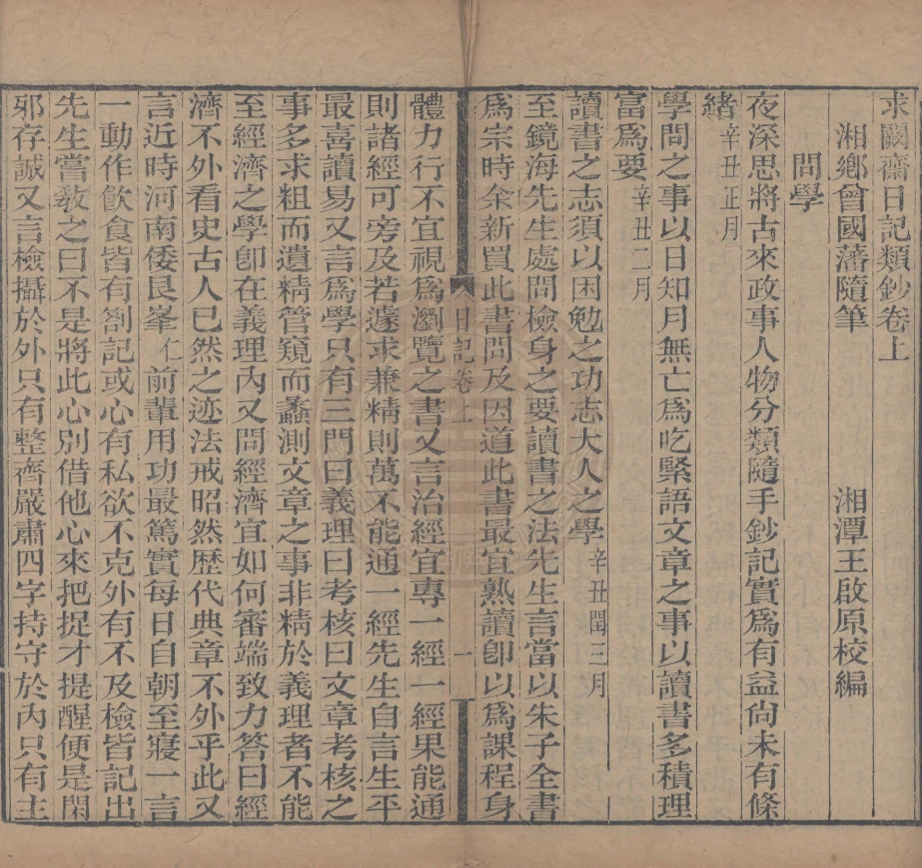 求闕齋日記類鈔卷上
湘鄉曾國藩隨筆　湘潭王啟原校編
問學
夜深思將古來政事人物分類隨手鈔記實爲有益尙未有條
緒辛丑正月
學問之事以日知月無亡爲吃緊語文章之事以讀書多積理
富爲要辛丑二月
讀書之志須以困勉之功志大人之學辛丑閏三月
至鏡海先生處問檢身之要讀書之法先生言當以朱子全書
爲宗時余新買此書問及因道此書最宜熟讀卽以爲課程身
日記卷上　一
體力行不宜視爲瀏覽之書又言治經宜專一經一經果能通
則諸經可旁及若遽求兼精則萬不能通一經先生自言生平
最喜讀易又言爲學只有三門曰義理曰考核曰文章考核之
事多求粗而遺精管窺而蠡測文章之事非精於義理者不能
至經濟之學卽在義理內又問經濟宜如何審端致力答曰經
濟不外看史古人已然之迹法戒昭然歷代典章不外乎此又
言近時河南倭艮峯仁前輩用功最篤實每日自朝至寢一言
一動作飮食皆有劄記或心有私欲不克外有不及檢皆記出
先生嘗敎之曰不是將此心別借他心來把捉才提醒便是閑
邪存誠又言檢攝於外只有整齊嚴肅四字持守於內只有主